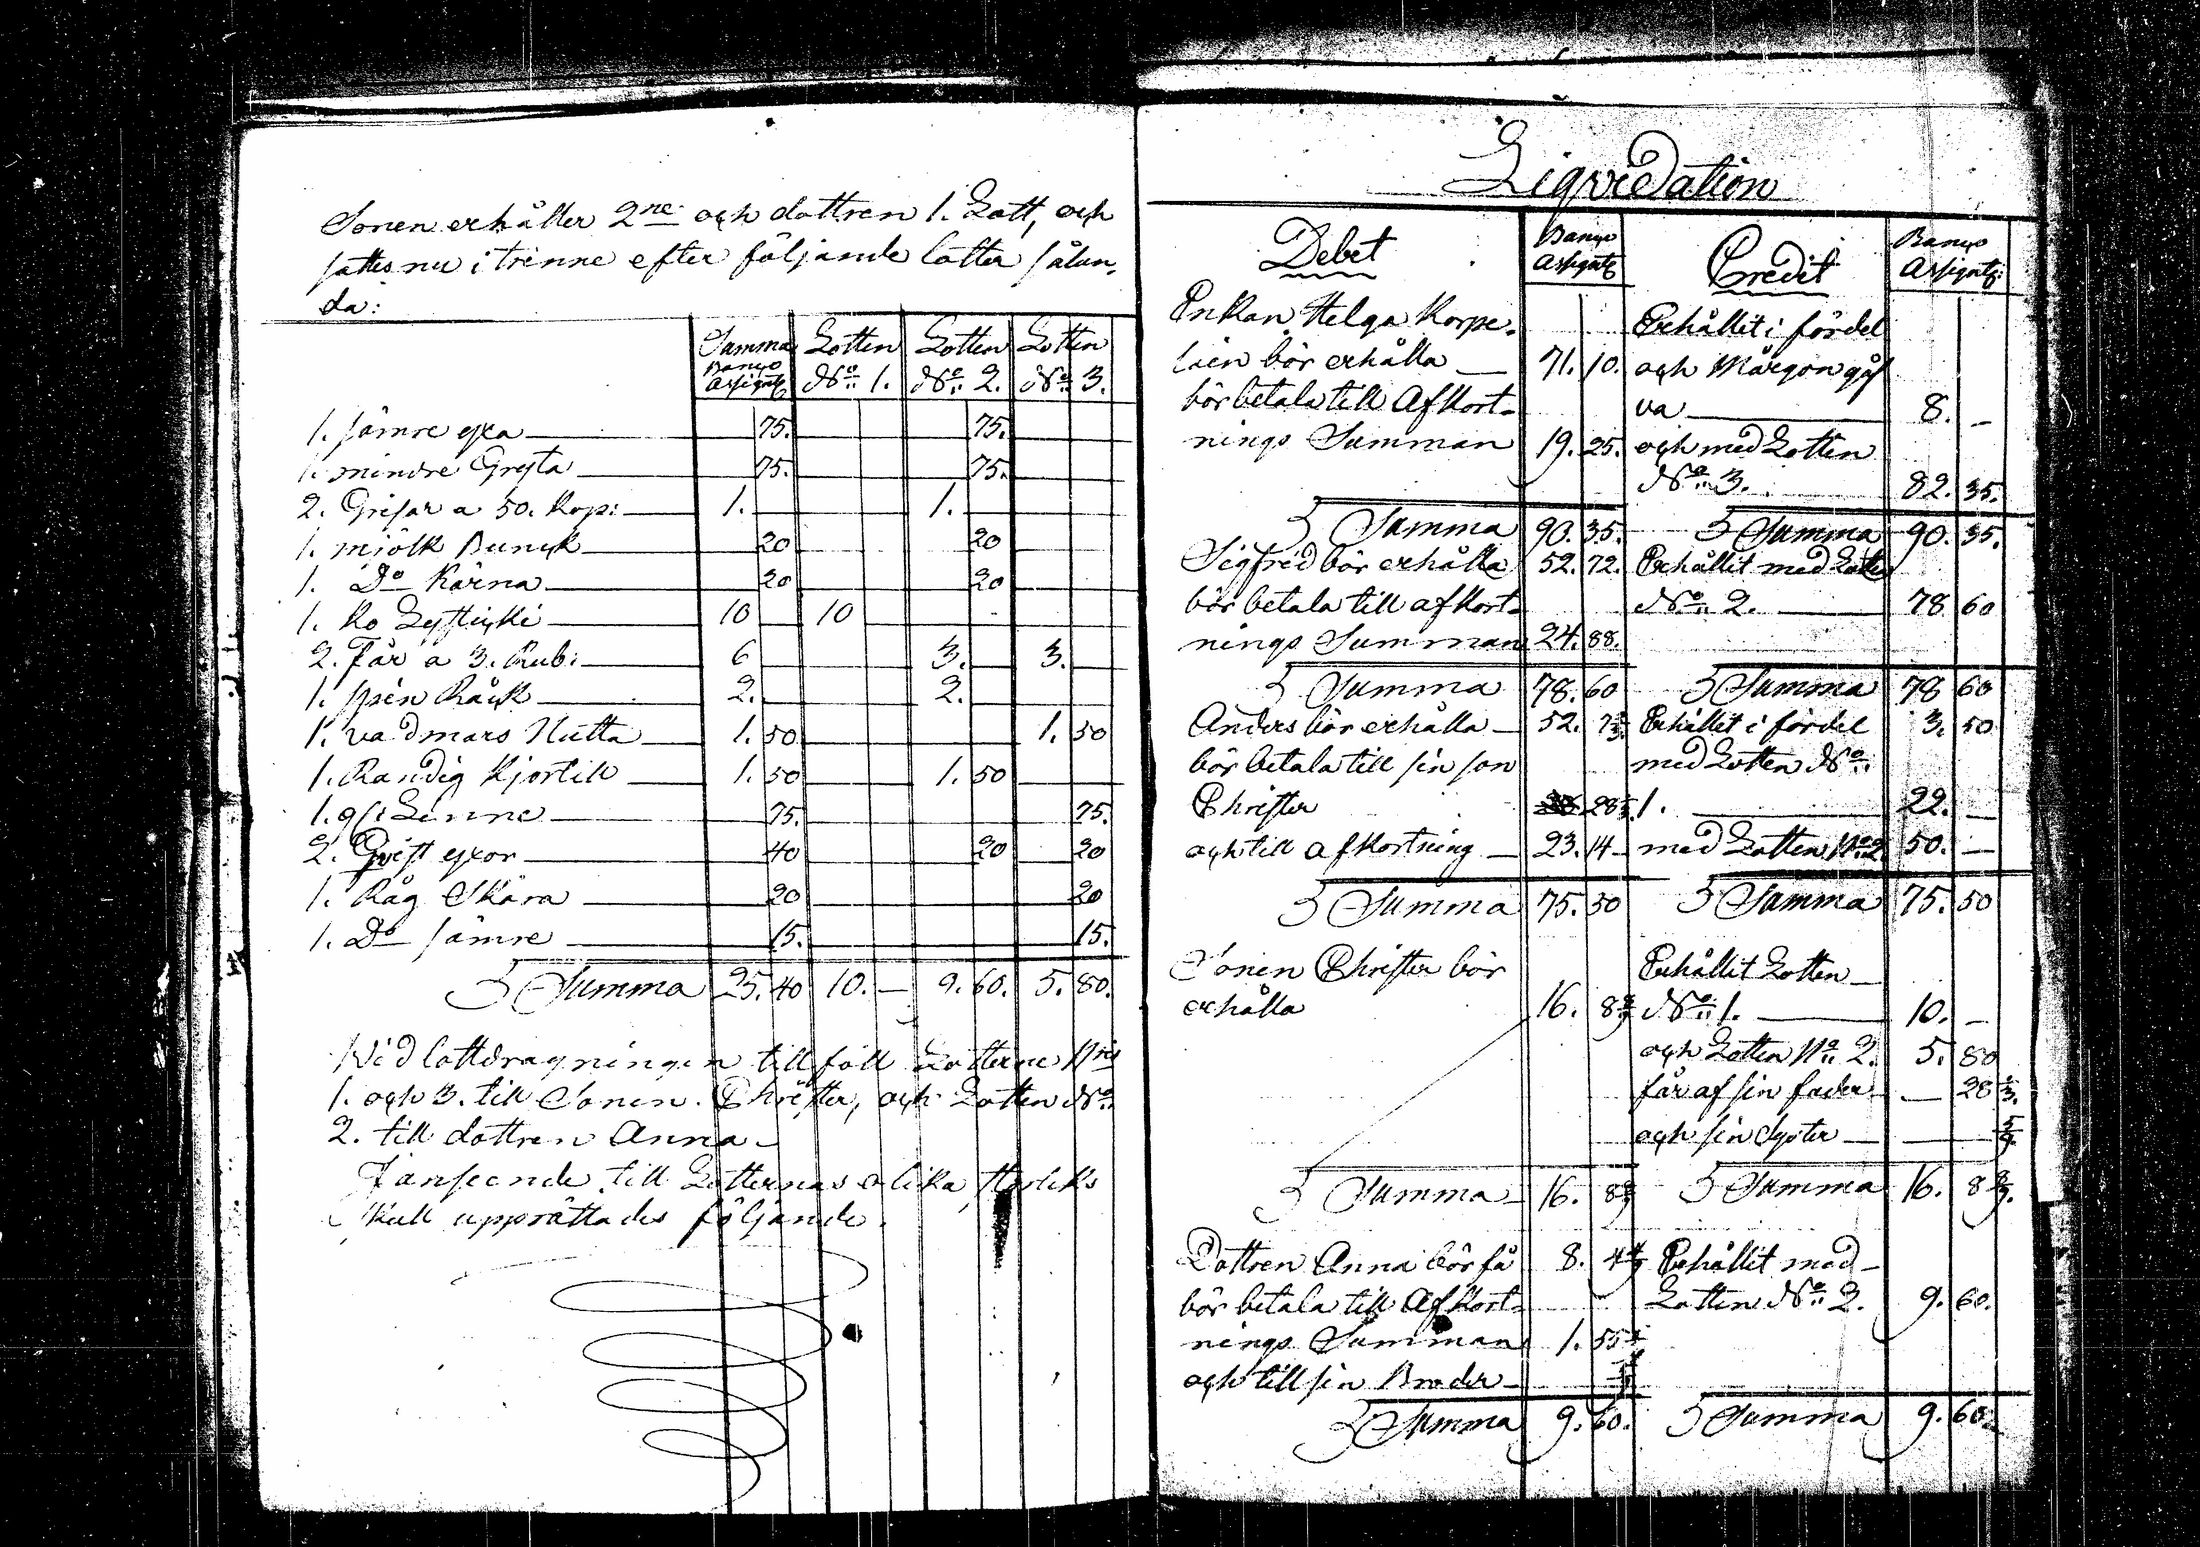 Sonen erhåller 2ne och dottren 1. Lott, och
sattes nu i trenne efter följande lotter sålun,
da:
Summa Banco Assignatz Lotten No 1. Lotten No 2. Lotten No 3.
1. sämre yxa 75. 75.
1. mindre Gryta 75. 75.
2. Grisar a 50. Kop: 1. 1.
1. mjölk Bunck 20 20
1. Do Kärna 20 20
1. Ko Lysticki 10 10
2. Får a 3. Rub: 6 3. 3.
1. spin Råck 2. 2.
1. vadmars Hutta 1. 50 1. 50
1. Randig Kjortill 1. 50 1. 50
1. Linne 75. 75.
2. yxor 40 20 20
1. Råg Skära 20 20
1. Do sämre 15. 15.
Summa 25. 40 10. — 9. 60. 5. 80.
Vid lottdragningen tillföll Lotterne Nris
1. och 3. till Sonen Christer, och Lotten No
2. till dottren Anna.
I anseende till Lotternas olika storleks
skull upprättades följande.
Liqvidation
Debet Banco Assignatz Credit Banco Assignatz:
Enkan Helga Korpe- Erhållit i fördel
lain bör erhålla — 71. 10. och Mårgon gåf
bör betala till Afkort- va — 8. —
nings Summan 19. 25. och med Lotten
No 3. 82. 35.
Summa 90. 35. Summa 90. 35.
Sigfrid bör erhålla 52. 72. Erhållit med Lotten
bör betala till afkort- No 2. — 78 60
nings Summan 24. 88.
Summa 78. 60 Summa 78 60
Anders bör erhålla — 52. Erhållit i fördel 3. 50
bör betala till sin son med Lotten No
Christer 28 1. — 22. —
och till afkortning — 23. 14 med Lotten No 2 50. —
Summa 75. 50 Summa 75. 50
Sonen Christer bör Erhållit Lotten —
erhålla 16. 8 8/9 No 1. — 10. —
och Lotten No 2. 5. 80
får af sin fader — 28 1/3.
och sin Syster — 5/9.
Summa — 16. 8 8/9 Summa 16. 8 8/9.
Dottren Anna bör få 8. 4 4/9 Erhållit med —
bör betala till Afkort- Lotten No 2. 9. 60.
nings Summan 1. 55
och till sin Broder —
Summa 9. 60. Summa 9. 60.